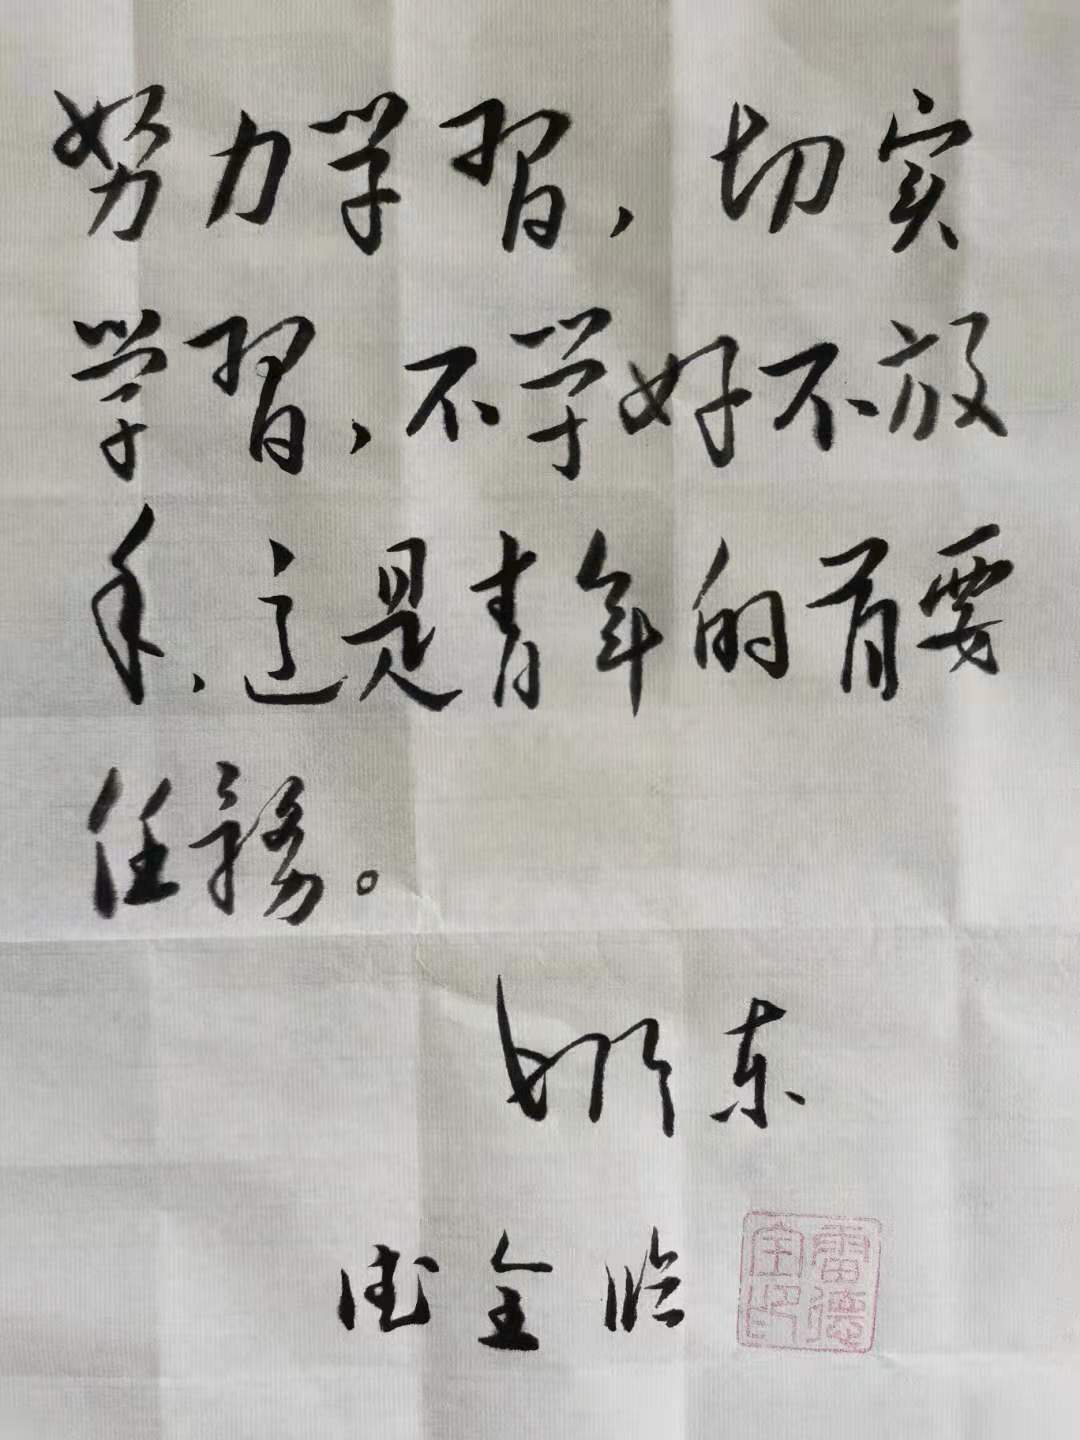 努力学习,切实
学习,不学好不放
手,这是青年的首要
任務。
东
德全临
雷德全印